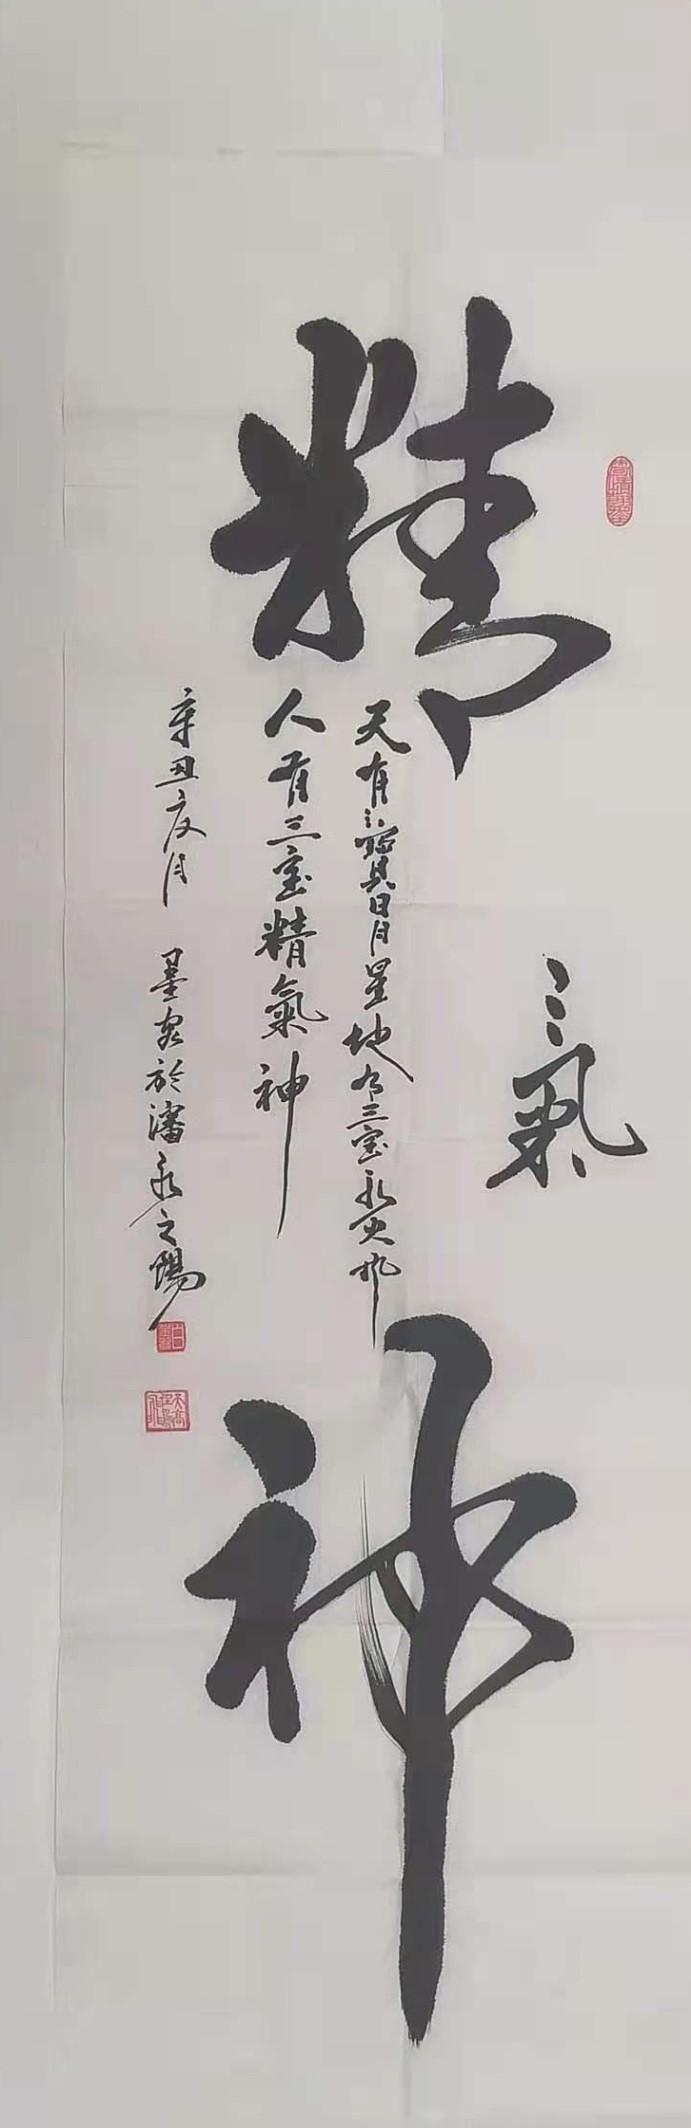 精
氣
神
天有三寶日月星地有三宝水火风
人有三宝精氣神
辛丑夏月
墨泉於瀋水之陽